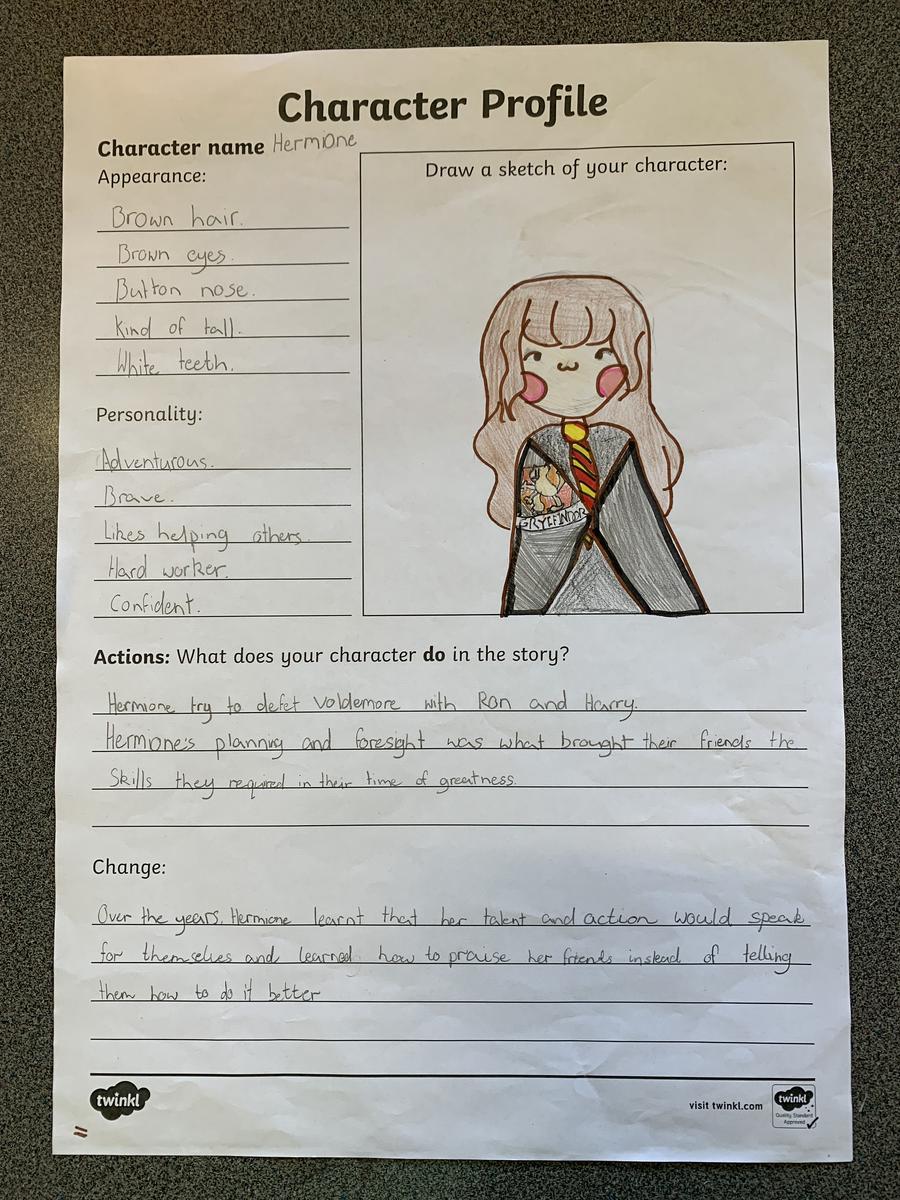 Character Profile
Character name Hermione
Appearance:
Draw a sketch of your character:
Brown hair.
Brown eyes.
Button nose.
Kind of tall.
White teeth.
Personality:
Adventurous.
Brave.
Likes helping others.
Hard worker.
Confident.
GRYFFINDOR
Actions: What does your character do in the story?
Hermione try to defet Voldemore with Ron and Harry.
Hermione's planning and foresight was what brought their friends the
Skills they required in their time of greatness.
Change:
Over the years, Hermione learnt that her talent and action would speak
for themselves and learned how to praise her friends instead of telling
them how to do it better
twinkl
visit twinkl.com
twinkl
Quality Standard
Approved